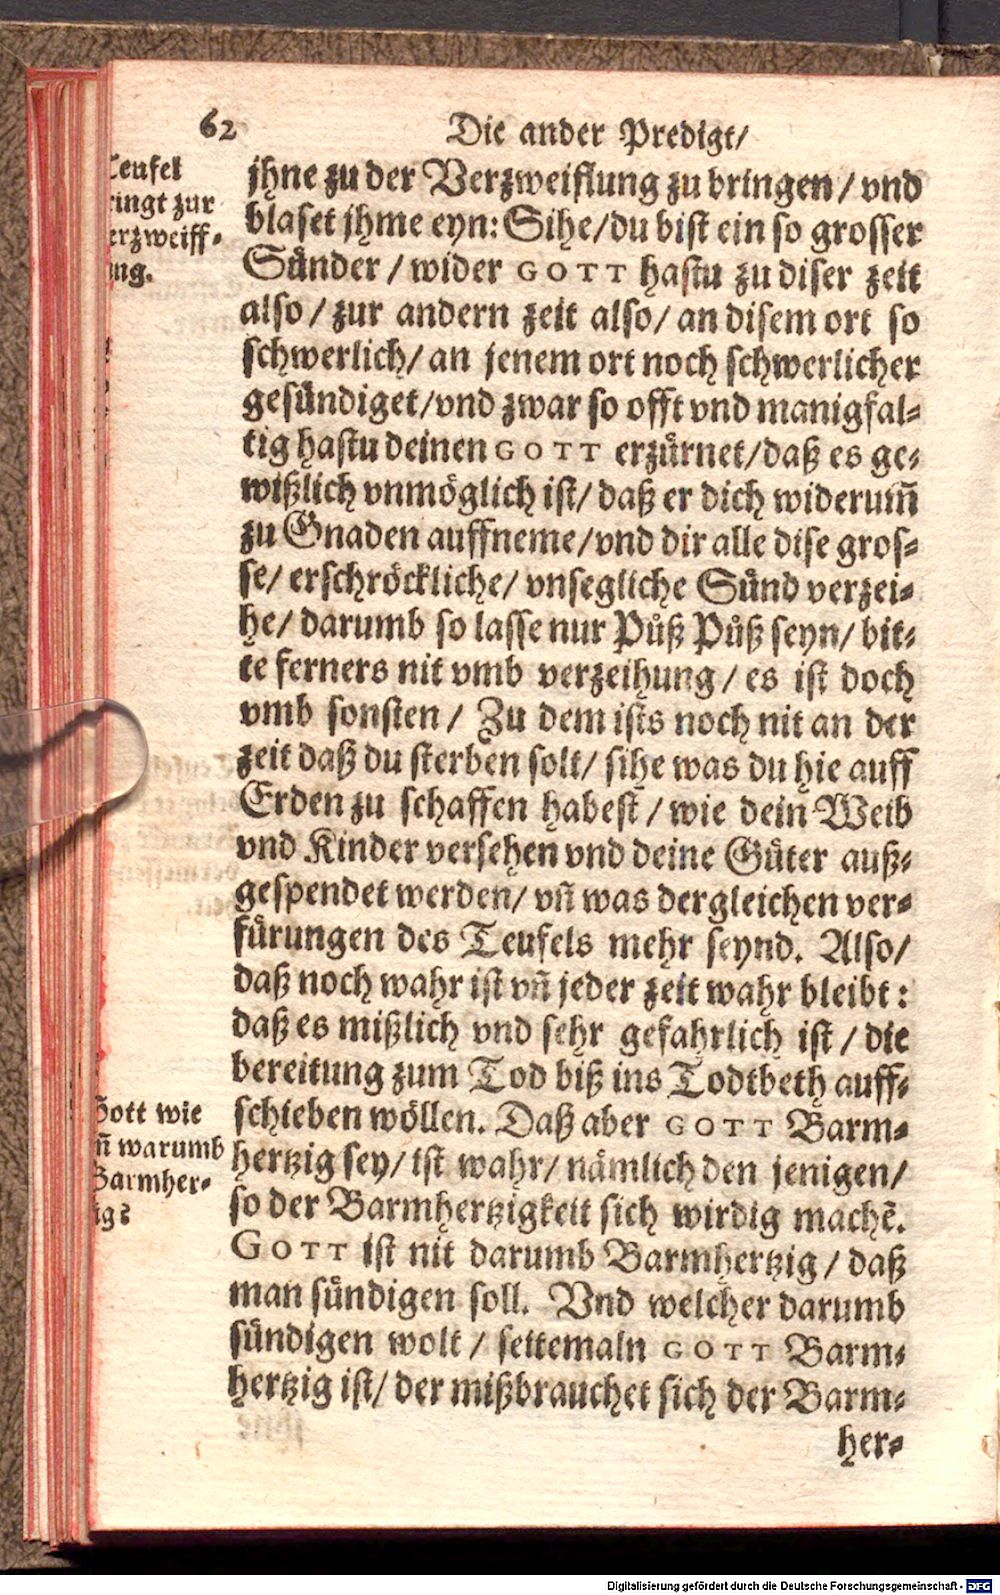 62
Die ander Predigt/
Teufel
ringt zur
erzweiff-
ung.
jhne zu der Verzweiflung zu bringen / vnd
blaset jhme eyn: Sihe/du bist ein so grosser
Sünder / wider GOTT hastu zu diser zeit
also / zur andern zeit also/ an disem ort so
schwerlich/ an jenem ort noch schwerlicher
gesündiget/vnd zwar so offt vnd manigfal-
tig hastu deinen GOTT erzürnet/daß es ge-
wißlich vnmöglich ist/ daß er dich widerum̃
zu Gnaden auffneme/vnd dir alle dise gros-
se/ erschröckliche/ vnsegliche Sünd verzei-
he/ darumb so lasse nur Půß Půß seyn/ bit-
te ferners nit vmb verzeihung/ es ist doch
vmb sonsten / Zu dem ists noch nit an der
zeit daß du sterben solt/ sihe was du hie auff
Erden zu schaffen habest / wie dein Weib
vnd Kinder versehen vnd deine Güter auß-
gespendet werden/ vñ was dergleichen ver-
fürungen des Teufels mehr seynd. Also/
daß noch wahr ist vñ jeder zeit wahr bleibt :
daß es mißlich vnd sehr gefahrlich ist / die
bereitung zum Tod biß ins Todtbeth auff-
schieben wöllen. Daß aber GOTT Barm-
hertzig sey/ ist wahr/ nämlich den jenigen/
so der Barmhertzigkeit sich wirdig machẽ.
GOTT ist nit darumb Barmhertzig / daß
man sündigen soll. Vnd welcher darumb
sündigen wolt / seitemaln GOTT Barm-
hertzig ist/ der mißbrauchet sich der Barm-
her-
Gott wie
ñ warumb
Barmher-
ig?
Digitalisierung gefördert durch die Deutsche Forschungsgemeinschaft - DFG